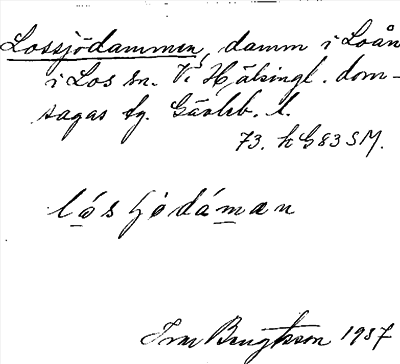 Lossjödammen, damm i Loån
i Los sn. V. Hälsingl. dom-
sagas tg. Gävleb. l.
73. h G 83 SM.
lósʃødáman
Ivar Bengtsson 1957